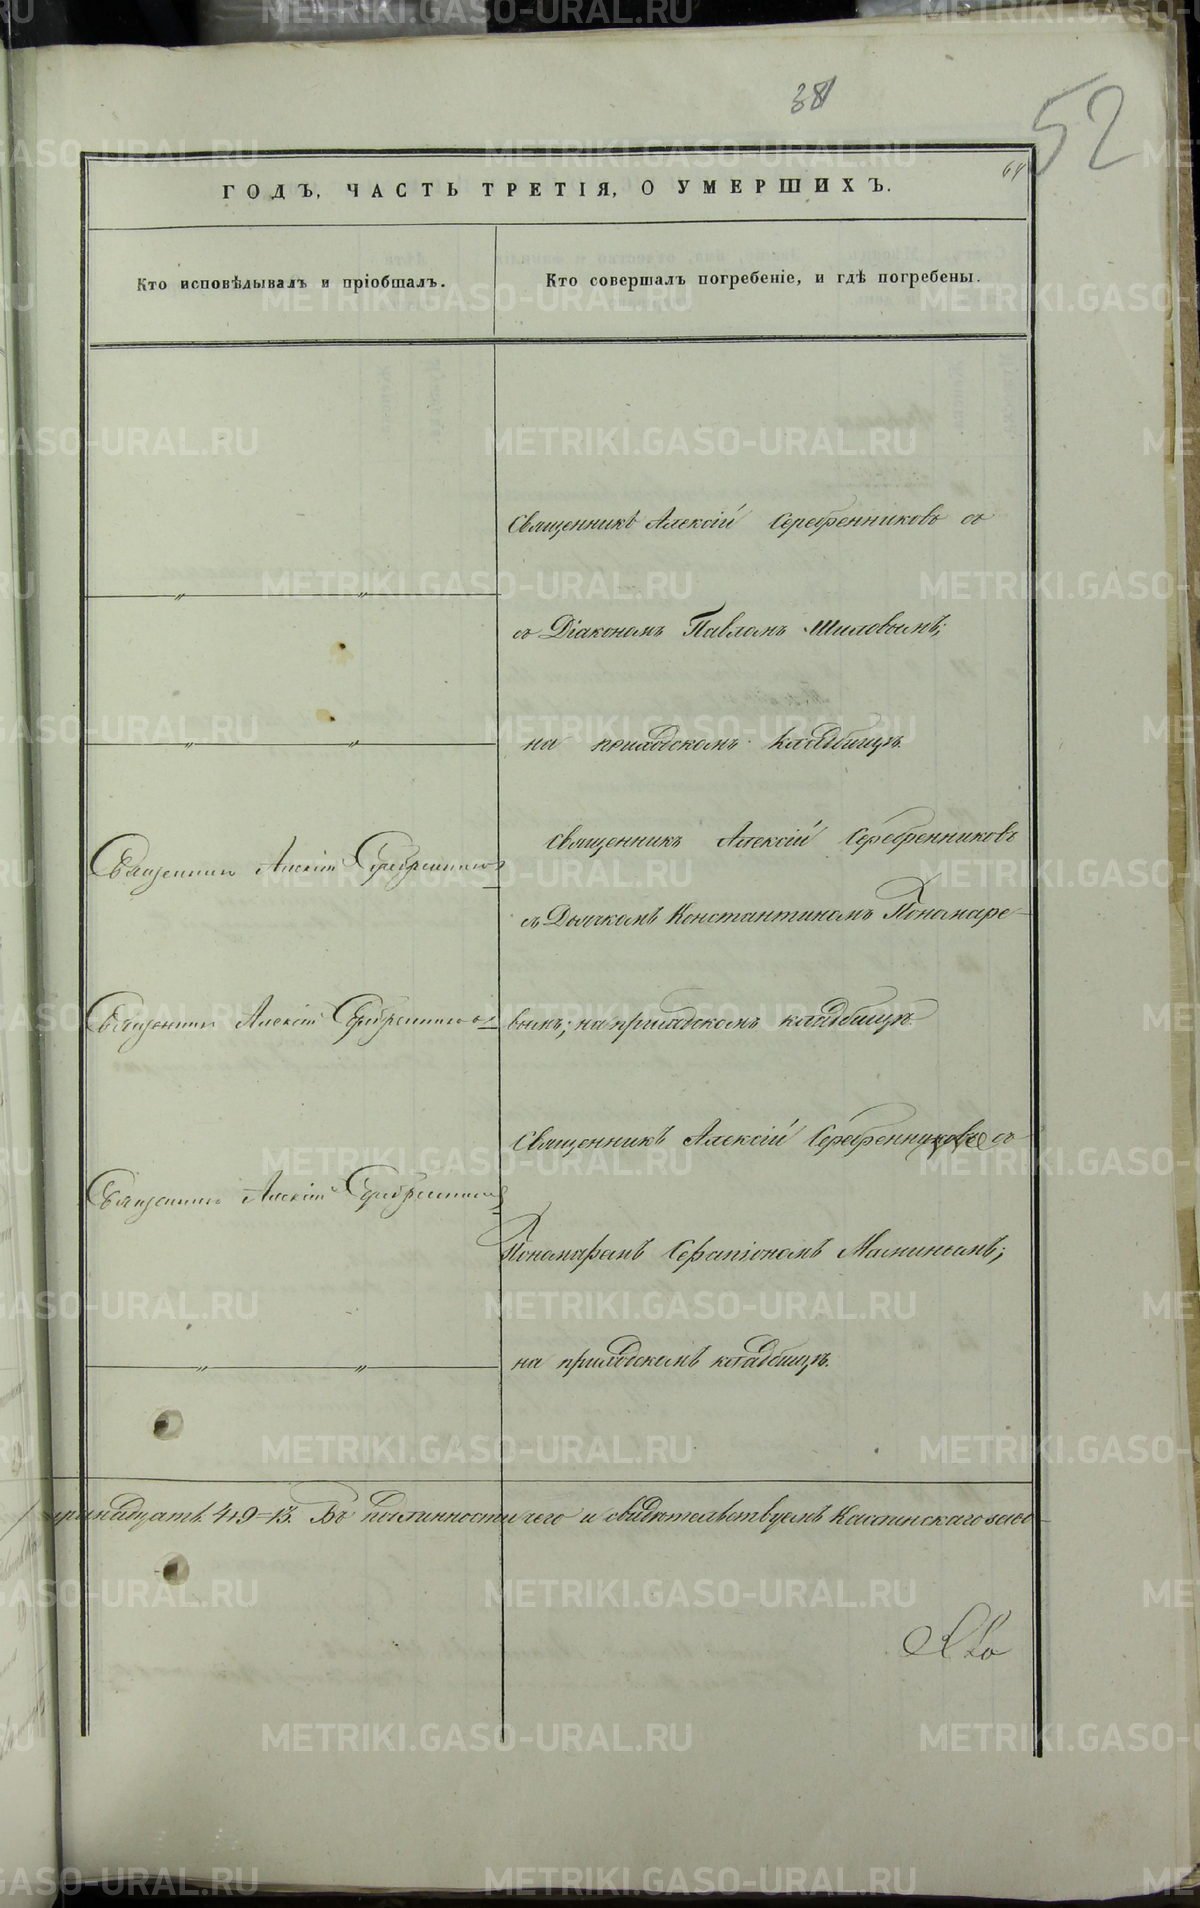 38
52
61
ГОДЪ, ЧАСТЬ ТРЕТІЯ, О УМЕРШИХЪ.
Кто исповѣдывалъ и пріобщалъ.
Кто совершалъ погребеніе, и гдѣ погребены.
Священникъ Алексій Серебренниковъ съ
съ Діакономъ Павломъ Шиловымъ;
на приходскомъ кладбищѣ.
Священникъ Алексій Серебренниковъ
Священникъ Алексій Серебренниковъ
съ Дьячкомъ Константиномъ Пономаре-
Священникъ Алексій Серебренниковъ
вымъ; на приходскомъ кладбищѣ.
Священникъ Алексій Серебренниковъ съ
Священникъ Алексій Серебренниковъ
Пономаремъ Серапіономъ Маминымъ;
на приходскомъ кладбищѣ.
тринадцать 4+9=13. Въ подлинности чего и свидѣтельствуемъ Каслинскаго заво-
METRIKI.GASO-URAL.RU